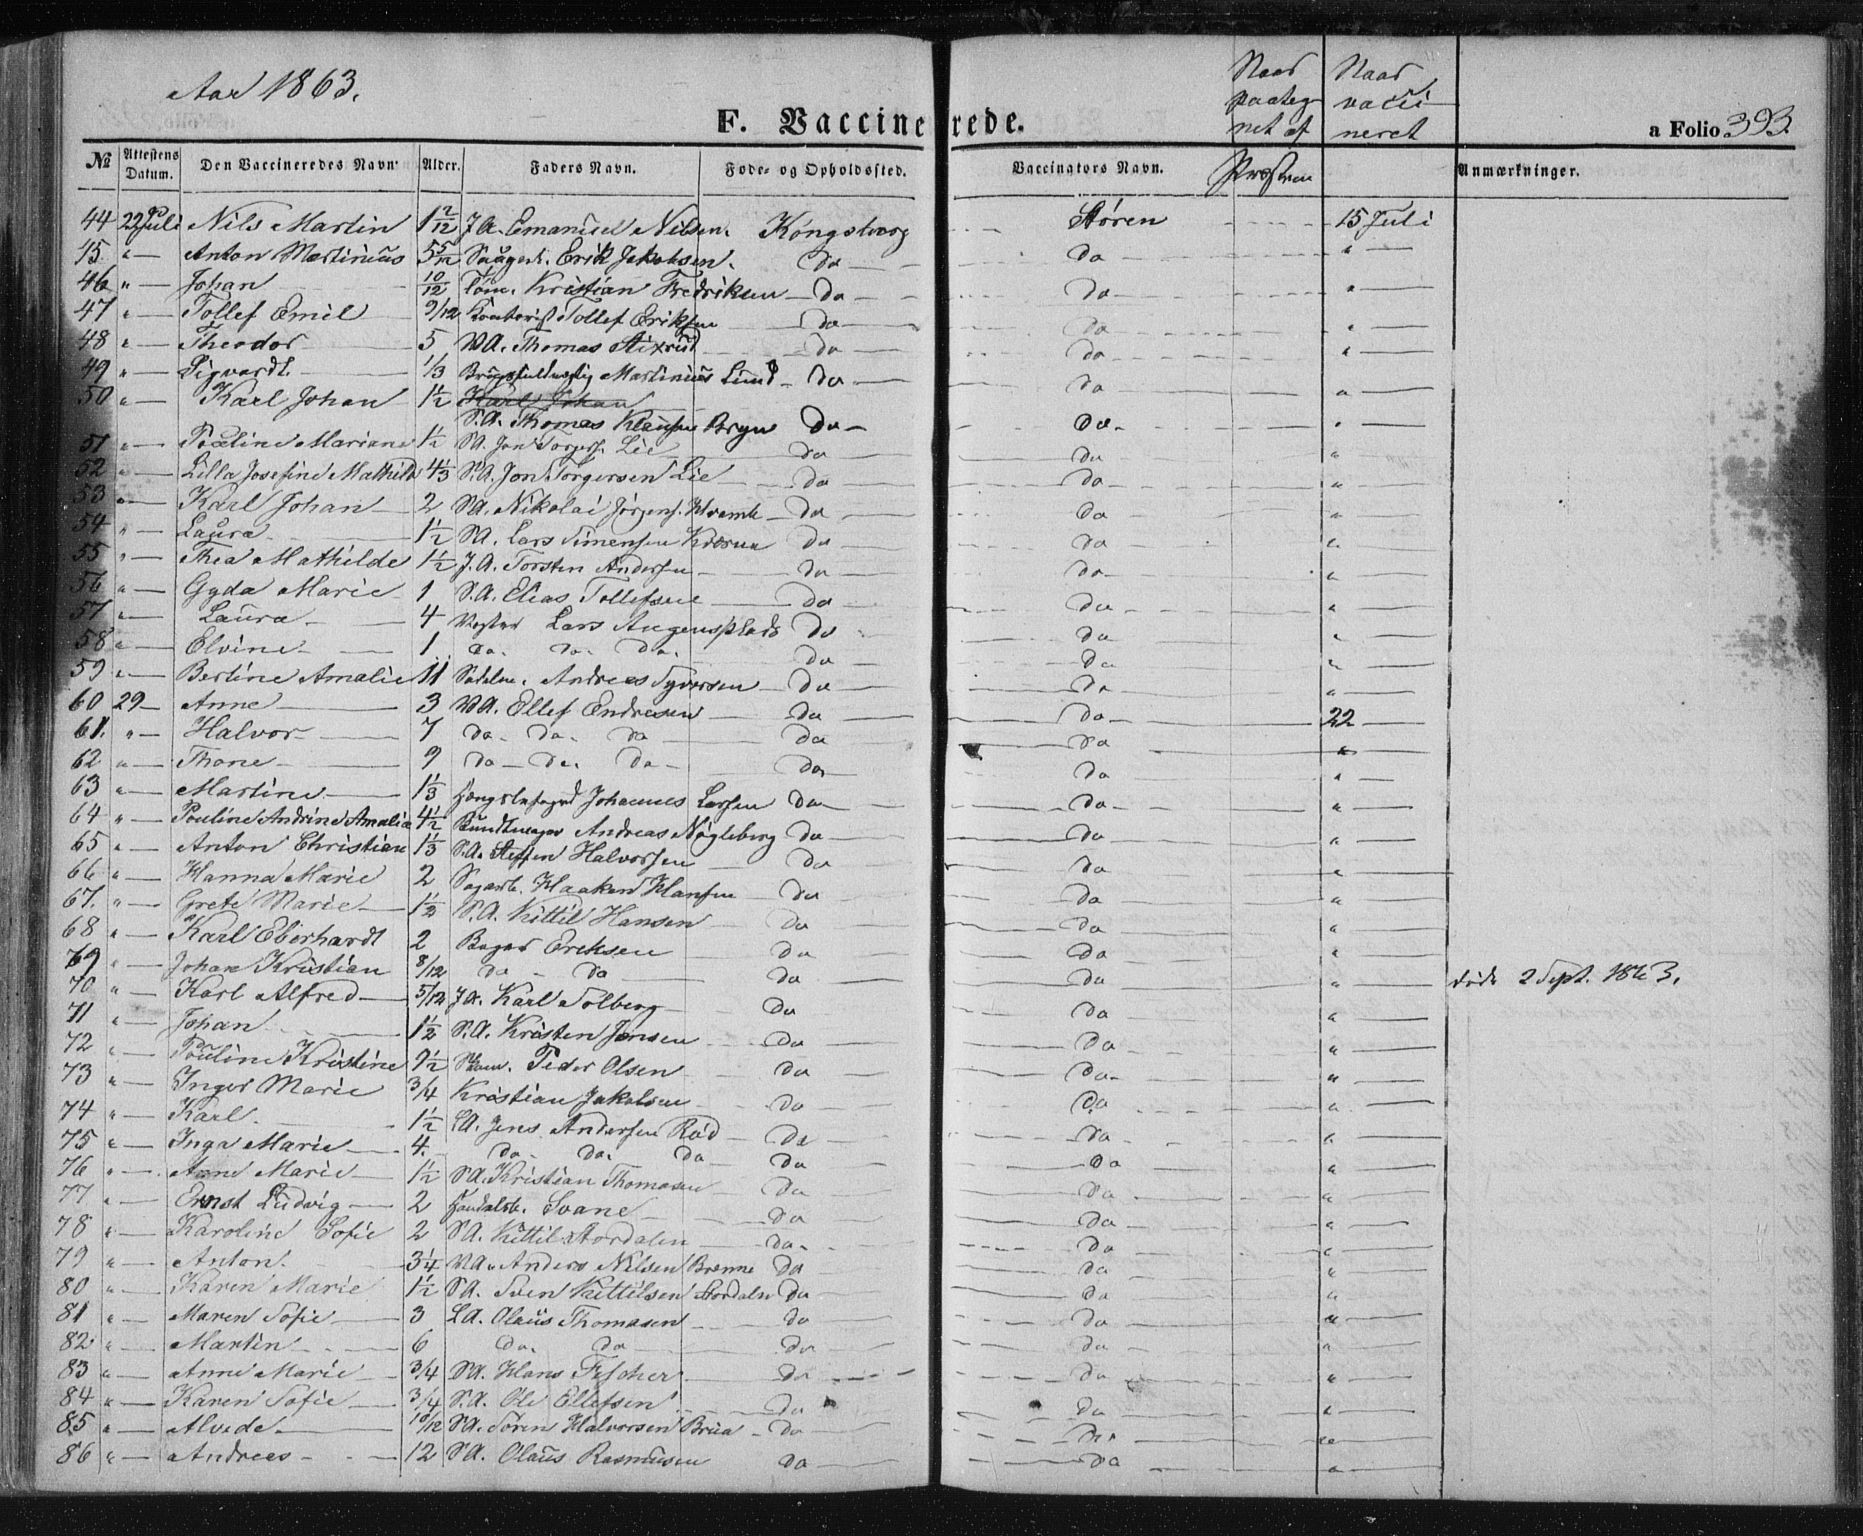 Aar 1863.
F. Vaccinerede.
a Folio 393.
№ Attestens Datum. Den Vaccineredes Navn Alder. Faders Navn. Føde- og Opholdssted. Vaccinators Navn. Naar paateg net af Naar vacci neret Anmærkninger.
44 22 Juli Nils Martin 1 2/12 J.A. Emanuel Nilsen. Kongsberg Støren 15 Juli
45 " Anton Martinius 5 5/12 Erik Jakobsen. do do "
46 " Johan 10/12 Tøm. Kristian Fredriksen do do "
47 " Tollef Emil 9/12 Kontorist Tollef Eriksen do do "
48 " Theodor 5 VA. Thomas Stixrud do do "
49 " Sigvardt. 1/3 Martinius Lund do do "
50 " Karl Johan 1 1/2 Karl Johan
S.A. Thomas Klausen Bryn do do "
51 " Pouline Mariane 1 1/2 SA. Jon Torgers. Lie do do "
52 " Lilla Josefine Mathilde 4 1/3 S.A. Jon Torgersen Lie do do "
53 " Karl Johan 2 SA. Nikolai Jørgens. do do "
54 " Laura 1 1/2 SA. Lars Simensen do do "
55 " Thea Mathilde 1 1/2 J.A. Torsten Andersen do do "
56 " Gyda Marie 1 S.A. Elias Tollefsen do do "
57 " Laura 4 Lars Augensplads do do "
58 " Elvine 1 do. do. do. do do "
59 " Bertine Amalie 11 Andreas Syversen do do "
60 29 Anne 3 VA. Ellef Endresen do do 22
61. " Halvor 7 do do do do do "
62 " Thone 9 do do do do do "
63 " Martine 1 1/3 Johannes Larsen do do "
64 " Pouline Andrine Amalia 4 1/2 Bundtmager Andreas Nøgleberg do do "
65 " Anton Christian 1 1/3 S.A. Steffen Halvorsen do do "
66 " Hanna Marie 2 Sagarb. Haaken Hansen do do "
67. " Grete Marie 1 1/2 S.A. Kittil Hansen do do "
68 " Karl Eberhardt 2 Bager Eriksen do do "
69 " Johan Kristian 8/12 do do do do "
70 " Karl Alfred 5/12 JA. Karl Solberg do do " døde 2 Sept. 1863.
71 " Johan 1 1/2 S.A. Kristen Jensen do do "
72 " Pouline Kristine 9 1/2 Peder Olsen do do "
73 " Inger Marie 3/4 Kristian Jakobsen do do "
74 " Karl 1 1/2 LA. Jens Andersen Rød do do "
75 " Inga Marie 4. do. do. do do do "
76 " Anne Marie 1 1/2 SA. Kristian Thomasen do do "
77 " Ernst Ludvig 2 Handelsb. Svane do do "
78 " Karoline Sofie 2 SA. Kittil Stordalen do do "
79 " Anton. 3 1/4 VA. Anders Nilsen Brenne do do "
80 " Karen Marie 1 1/2 SA. Sven Kittilsen Stordalen do do "
81 " Maren Sofie 3 LA. Olaus Thomasen do do "
82 " Martin 6 do. do do do "
83 " Anne Marie 3/4 SA. Hans Fischer do do "
84 " Karen Sofie 3/4 S.A. Ole Ellefsen do do "
85 " Alvede 10/12 SA. Søren Halvorsen Brua do do "
86 " Andreas 12 SA. Olaus Rasmusen do do "